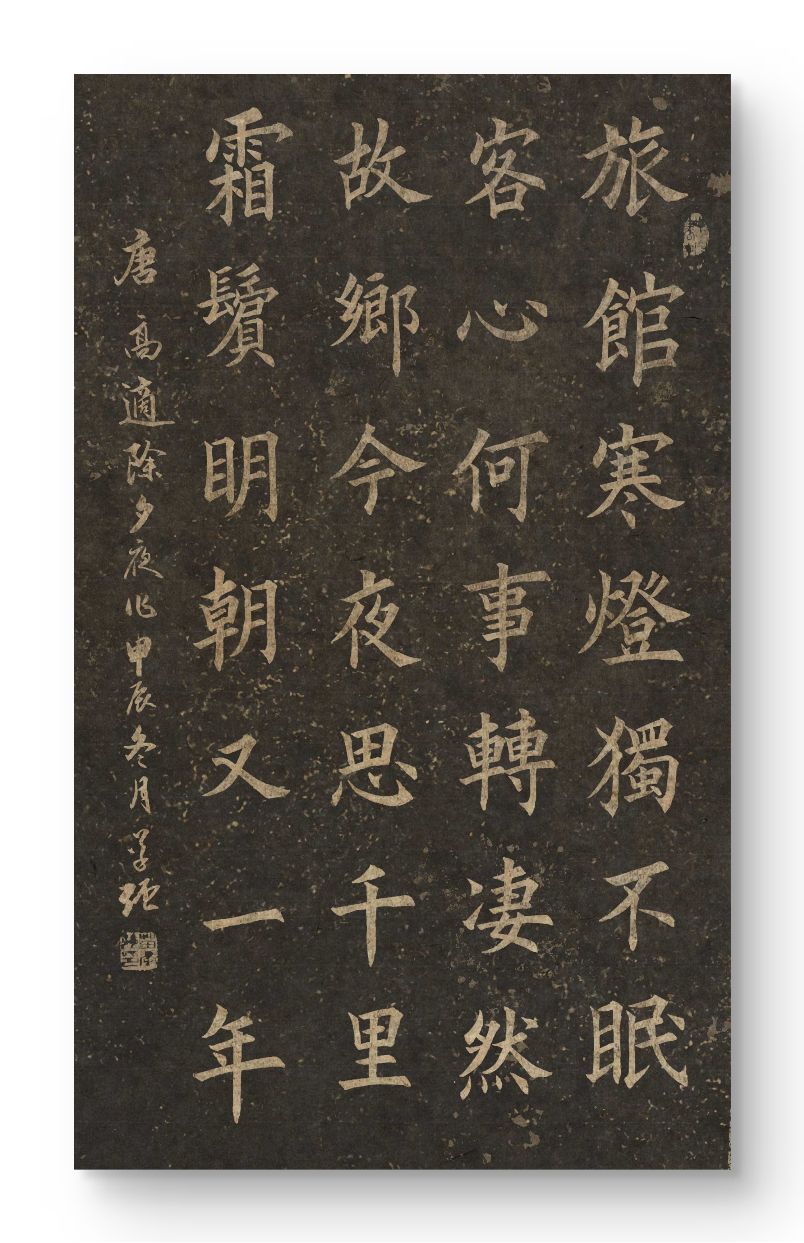 旅館寒燈獨不眠
客心何事轉凄然
故鄉今夜思千里
霜鬢明朝又一年
唐高適除夕夜作甲辰冬月